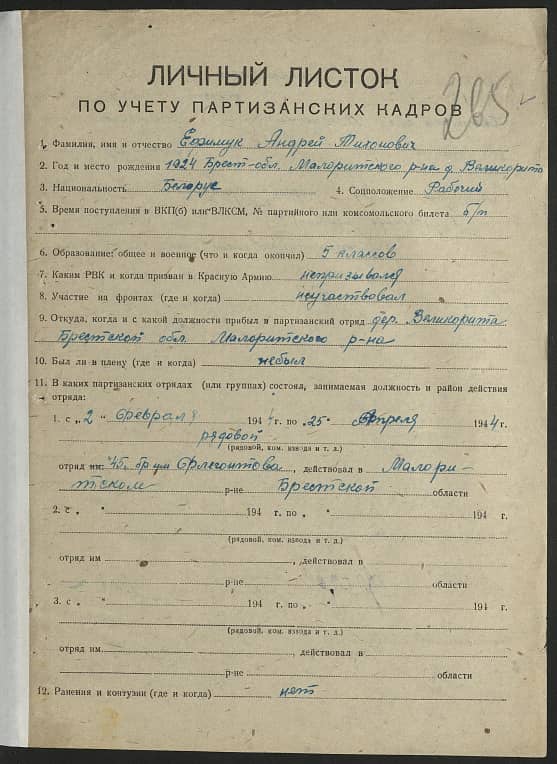 265
ЛИЧНЫЙ ЛИСТОК
ПО УЧЕТУ ПАРТИЗАНСКИХ КАДРОВ
1. Фамилия, имя и отчество Ефимук Андрей Тихонович
2. Год и место рождения 1924 Брест-обл. Малоритского р-на д Великорита
3. Национальность Беларус 4. Соцположение Рабочий
5. Время поступления в ВКП(б) или ВЛКСМ, № партийного или комсомольского билета б/п
6. Образование общее и военное (что и когда окончил) 5 классов
7. Каким РВК и когда призван в Красную Армию непризывался
8. Участие на фронтах (где и когда) неучаствовал
9. Откуда, когда и с какой должности прибыл в партизанский отряд дер. Великорита
Брестской обл. Малоритского р-на
10. Был ли в плену (где и когда) небыл
11. В каких партизанских отрядах (или группах) состоял, занимаемая должность и район действия
отряда:
1. с „2" февраля 1944 г. по „25" Апреля 1944 г.
рядовой
(рядовой, ком. взвода и т. д.)
отряд им. 45. бр им Флегонтова, действовал в Малори-
тском р-не Брестской области
2. с „ " 194 г. по „ " 194 г.
(рядовой, ком. взвода и т. д.)
отряд им , действовал в
р-не области
3. с „ " 194 г. по „ " 194 г.
(рядовой, ком. взвода и т. д.)
отряд им. , действовал в
р-не области
12. Ранения и контузии (где и когда) нет